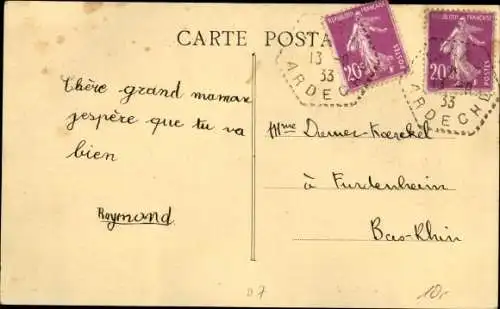 CARTE POSTA
REPUBLIQUE FRANÇAISE
20c
POSTES
REPUBLIQUE FRANÇAISE
20
POSTES
13
33
ARDECHE
33
ARDECHE
Chère grand maman
j'espère que tu va
bien
Raymond
Mme
à Furdenheim
Bas-Rhin
07
10,-